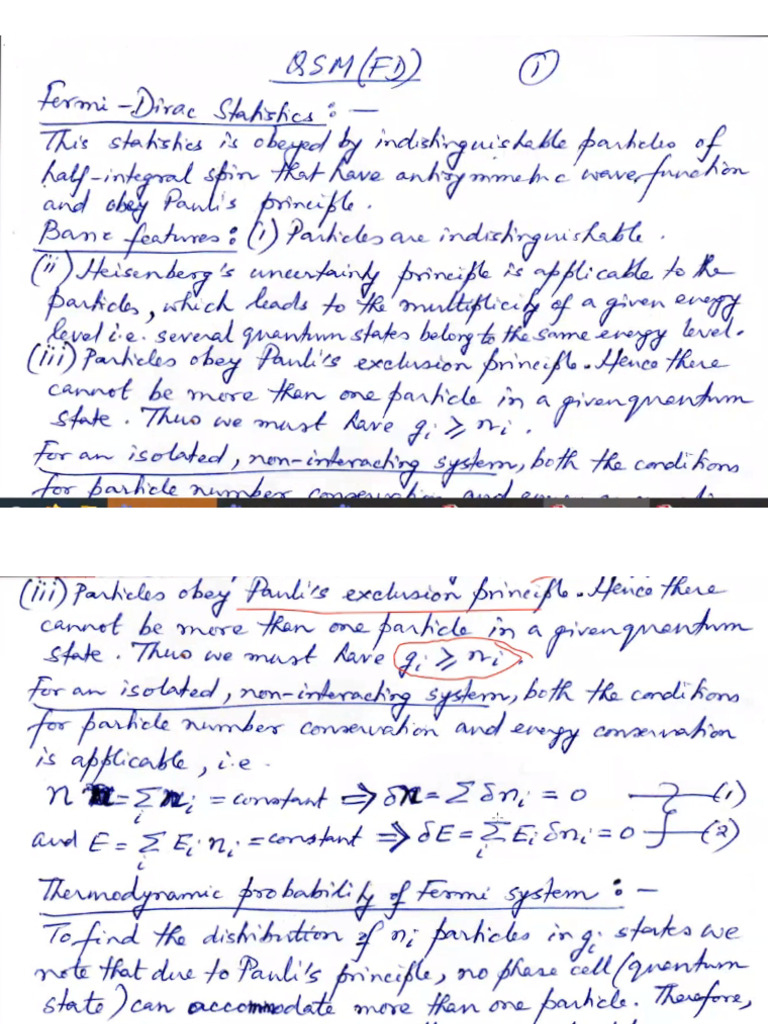 QSM(FD) (1)
Fermi-Dirac Statistics: —
This statistics is obeyed by indistinguishable particles of
half-integral spin that have antisymmetric wavefunction
and obey Pauli's principle.
Basic features: (i) Particles are indistinguishable.
(ii) Heisenberg's uncertainty principle is applicable to the
particles, which leads to the multiplicity of a given energy
level i.e. several quantum states belong to the same energy level.
(iii) Particles obey Pauli's exclusion principle. Hence there
cannot be more than one particle in a given quantum
state. Thus we must have gᵢ ⩾ nᵢ.
For an isolated, non-interacting system, both the conditions
for particle number conservation and energy
(iii) Particles obey Pauli's exclusion principle. Hence there
cannot be more than one particle in a given quantum
state. Thus we must have gᵢ ⩾ nᵢ.
For an isolated, non-interacting system, both the conditions
for particle number conservation and energy conservation
is applicable, i.e.
n = Σᵢ nᵢ = constant ⇒ δn = Σ δnᵢ = 0 —(1)
and E = Σᵢ Eᵢ nᵢ = constant ⇒ δE = Σᵢ Eᵢ δnᵢ = 0 —(2)
Thermodynamic probability of Fermi system: —
To find the distribution of nᵢ particles in gᵢ states we
note that due to Pauli's principle, no phase cell (quantum
state) can accommodate more than one particle. Therefore,